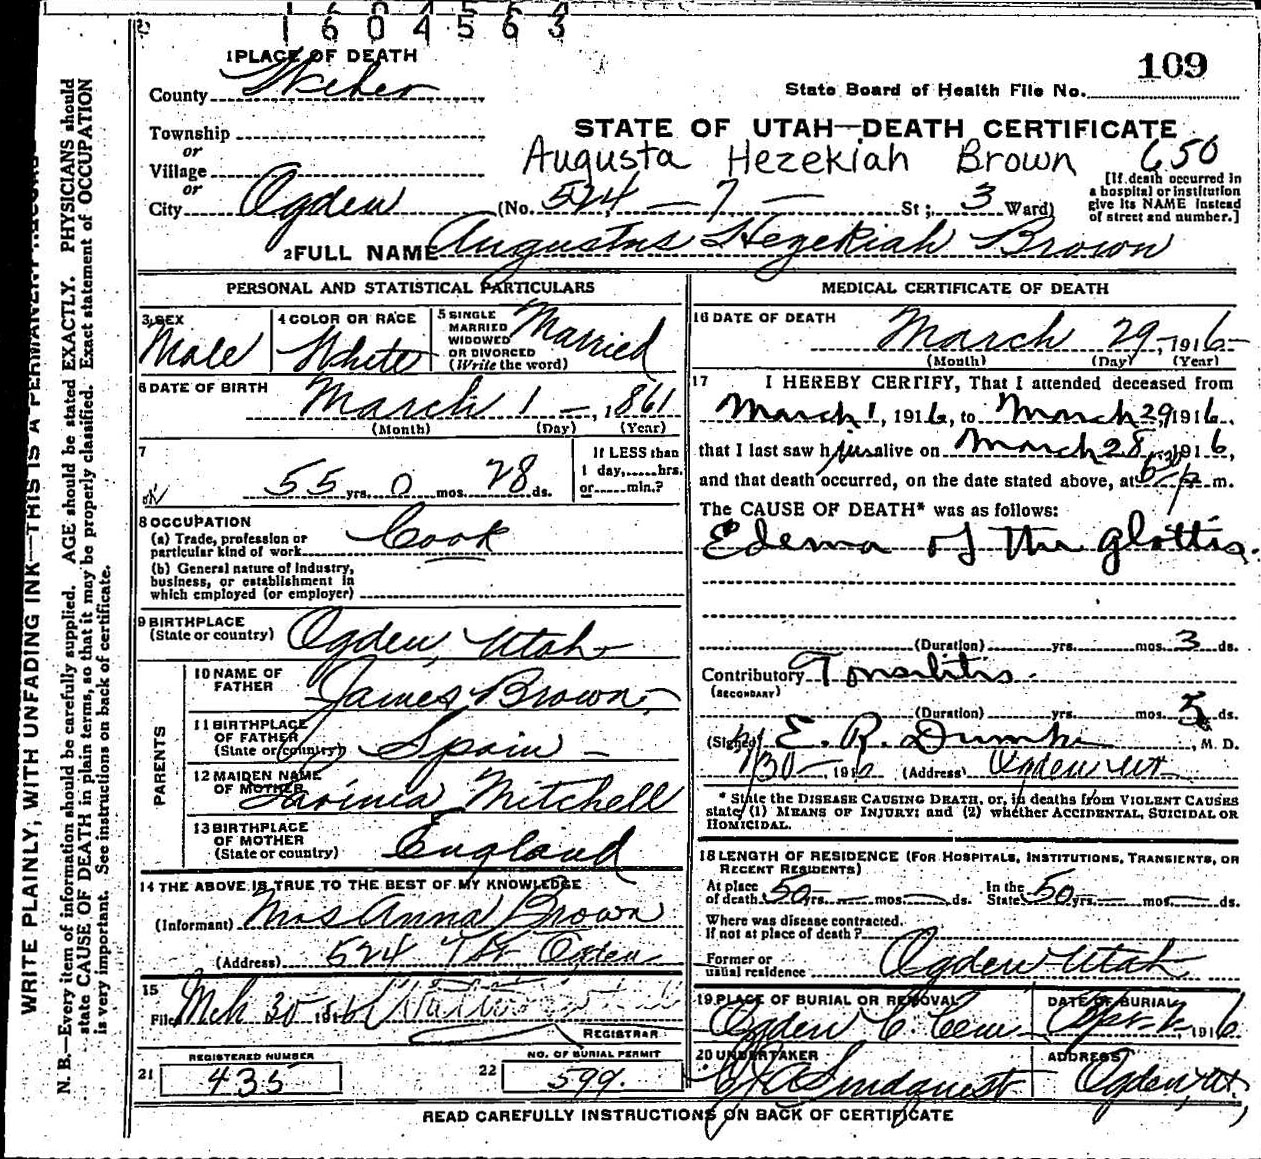 1604563
1 PLACE OF DEATH
109
County Weber
State Board of Health File No.
Township
STATE OF UTAH—DEATH CERTIFICATE
or
Augusta Hezekiah Brown 650
Village
or
[If death occurred in a hospital or institution give its NAME instead of street and number.]
City Ogden (No. 524 — 7 — St; 3 Ward)
2 FULL NAME Augustus Hezekiah Brown
PERSONAL AND STATISTICAL PARTICULARS
3 SEX Male
4 COLOR OR RACE White
5 SINGLE MARRIED WIDOWED OR DIVORCED (Write the word) Married
6 DATE OF BIRTH
March 1 —, 1861
(Month) (Day) (Year)
7
55 yrs. 0 mos. 28 ds.
If LESS than 1 day,......hrs. or......min.?
8 OCCUPATION
(a) Trade, profession or particular kind of work Cook
(b) General nature of industry, business, or establishment in which employed (or employer)
9 BIRTHPLACE
(State or country) Ogden, Utah
PARENTS
10 NAME OF FATHER James Brown
11 BIRTHPLACE OF FATHER (State or country) Spain —
12 MAIDEN NAME OF MOTHER Lavinia Mitchell
13 BIRTHPLACE OF MOTHER (State or country) England
14 THE ABOVE IS TRUE TO THE BEST OF MY KNOWLEDGE
(Informant) Mrs Anna Brown
(Address) 524 7 St Ogden
15
Filed Mch 30 1916
REGISTRAR
REGISTERED NUMBER
21 435
NO. OF BURIAL PERMIT
22 599.
MEDICAL CERTIFICATE OF DEATH
16 DATE OF DEATH
March 29, 1916
(Month) (Day) (Year)
17 I HEREBY CERTIFY, That I attended deceased from
March 1, 1916, to March 29, 1916,
that I last saw him alive on March 28, 1916,
and that death occurred, on the date stated above, at p m.
The CAUSE OF DEATH* was as follows:
Edema of the glottis.
(Duration) yrs. mos. 3 ds.
Contributory Tonsilitis.
(SECONDARY)
(Duration) yrs. mos. 5 ds.
(Signed) E. R. Dumke, M. D.
30 —, 1916 (Address) Ogden Ut
* State the DISEASE CAUSING DEATH, or, in deaths from VIOLENT CAUSES
state (1) MEANS OF INJURY; and (2) whether ACCIDENTAL, SUICIDAL OR
HOMICIDAL.
18 LENGTH OF RESIDENCE (FOR HOSPITALS, INSTITUTIONS, TRANSIENTS, OR
RECENT RESIDENTS)
At place of death 50 yrs. — mos. — ds. In the State 50 yrs. — mos. — ds.
Where was disease contracted,
If not at place of death?
Former or usual residence Ogden Utah
19 PLACE OF BURIAL OR REMOVAL
Ogden C. Cem
DATE OF BURIAL
Apr 2, 1916
20 UNDERTAKER
Lindquist
ADDRESS
Ogden, Ut.
READ CAREFULLY INSTRUCTIONS ON BACK OF CERTIFICATE
WRITE PLAINLY, WITH UNFADING INK—THIS IS A PERMANENT RECORD
N. B.—Every item of information should be carefully supplied. AGE should be stated EXACTLY. PHYSICIANS should
state CAUSE OF DEATH in plain terms, so that it may be properly classified. Exact statement of OCCUPATION
is very important. See instructions on back of certificate.